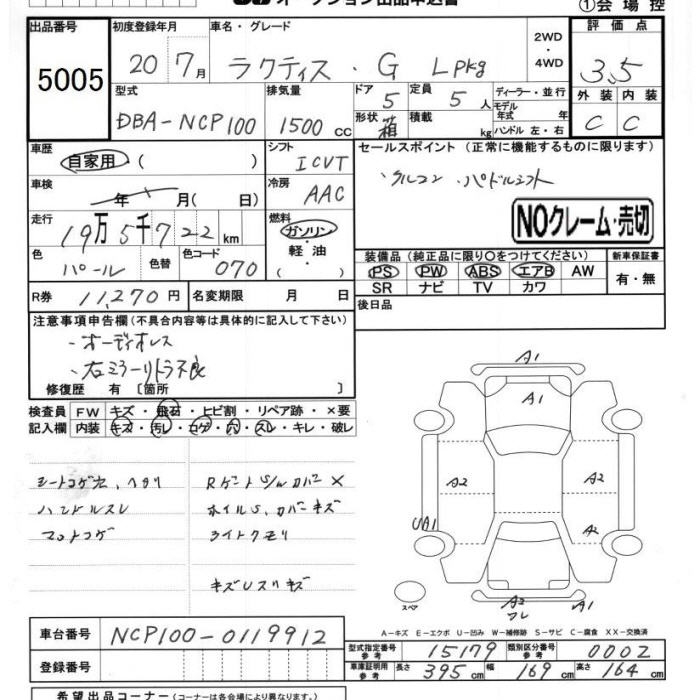 オークション出品申込書
①会場控
出品番号 初度登録年月 車名・グレード 2WD・4WD 評価点
5005 20 7月 ラクティス・G Lpkg 3.5
型式 排気量 ドア 5 定員 5人 ディーラー・並行 外装 内装
DBA-NCP100 1500cc 形状 箱 積載 kg モデル年式 年 ハンドル 左・右 C C
車歴 自家用 ( ) シフト ICVT セールスポイント (正常に機能するものに限ります)
車検 年 月(日) 冷房 AAC ・クルコン ・パドルシフト
走行 19万5千722km 燃料 ガソリン・軽油・( ) NOクレーム・売切
色 パール 色替 色コード 070 装備品 (純正品に限り○をつけてください) 新車保証書
PS PW ABS エアB AW 有・無
SR ナビ TV カワ
R券 11,270円 名変期限 月 日 後日品
注意事項申告欄 (不具合内容等は具体的に記入して下さい)
・オーディオレス
・右ミラーリトラ不良
修復歴 有 [箇所 ]
検査員 FW キズ・飛石・ヒビ割・リペア跡・×要
記入欄 内装 キズ・汚レ・コゲ・穴・スレ・キレ・破レ
シートコゲ穴、ヘタリ
ハンドルスレ
マットコゲ
Rゲート カバー ×
ホイルS、カバーキズ
ライトクモリ
キズUスリキズ
A1
A1
A2 A2
UA1 A2
スペア
A2 フレ A1
A-キズ E-エクボ U-凹み W-補修跡 S-サビ C-腐食 XX-交換済
車台番号 NCP100-0119912
登録番号
型式指定番号 参考 15179 類別区分番号 参考 0002
車庫証明用 参考 長さ 395cm 幅 169cm 高さ 164cm
希望出品コーナー (コーナーは各会場により異なります。)